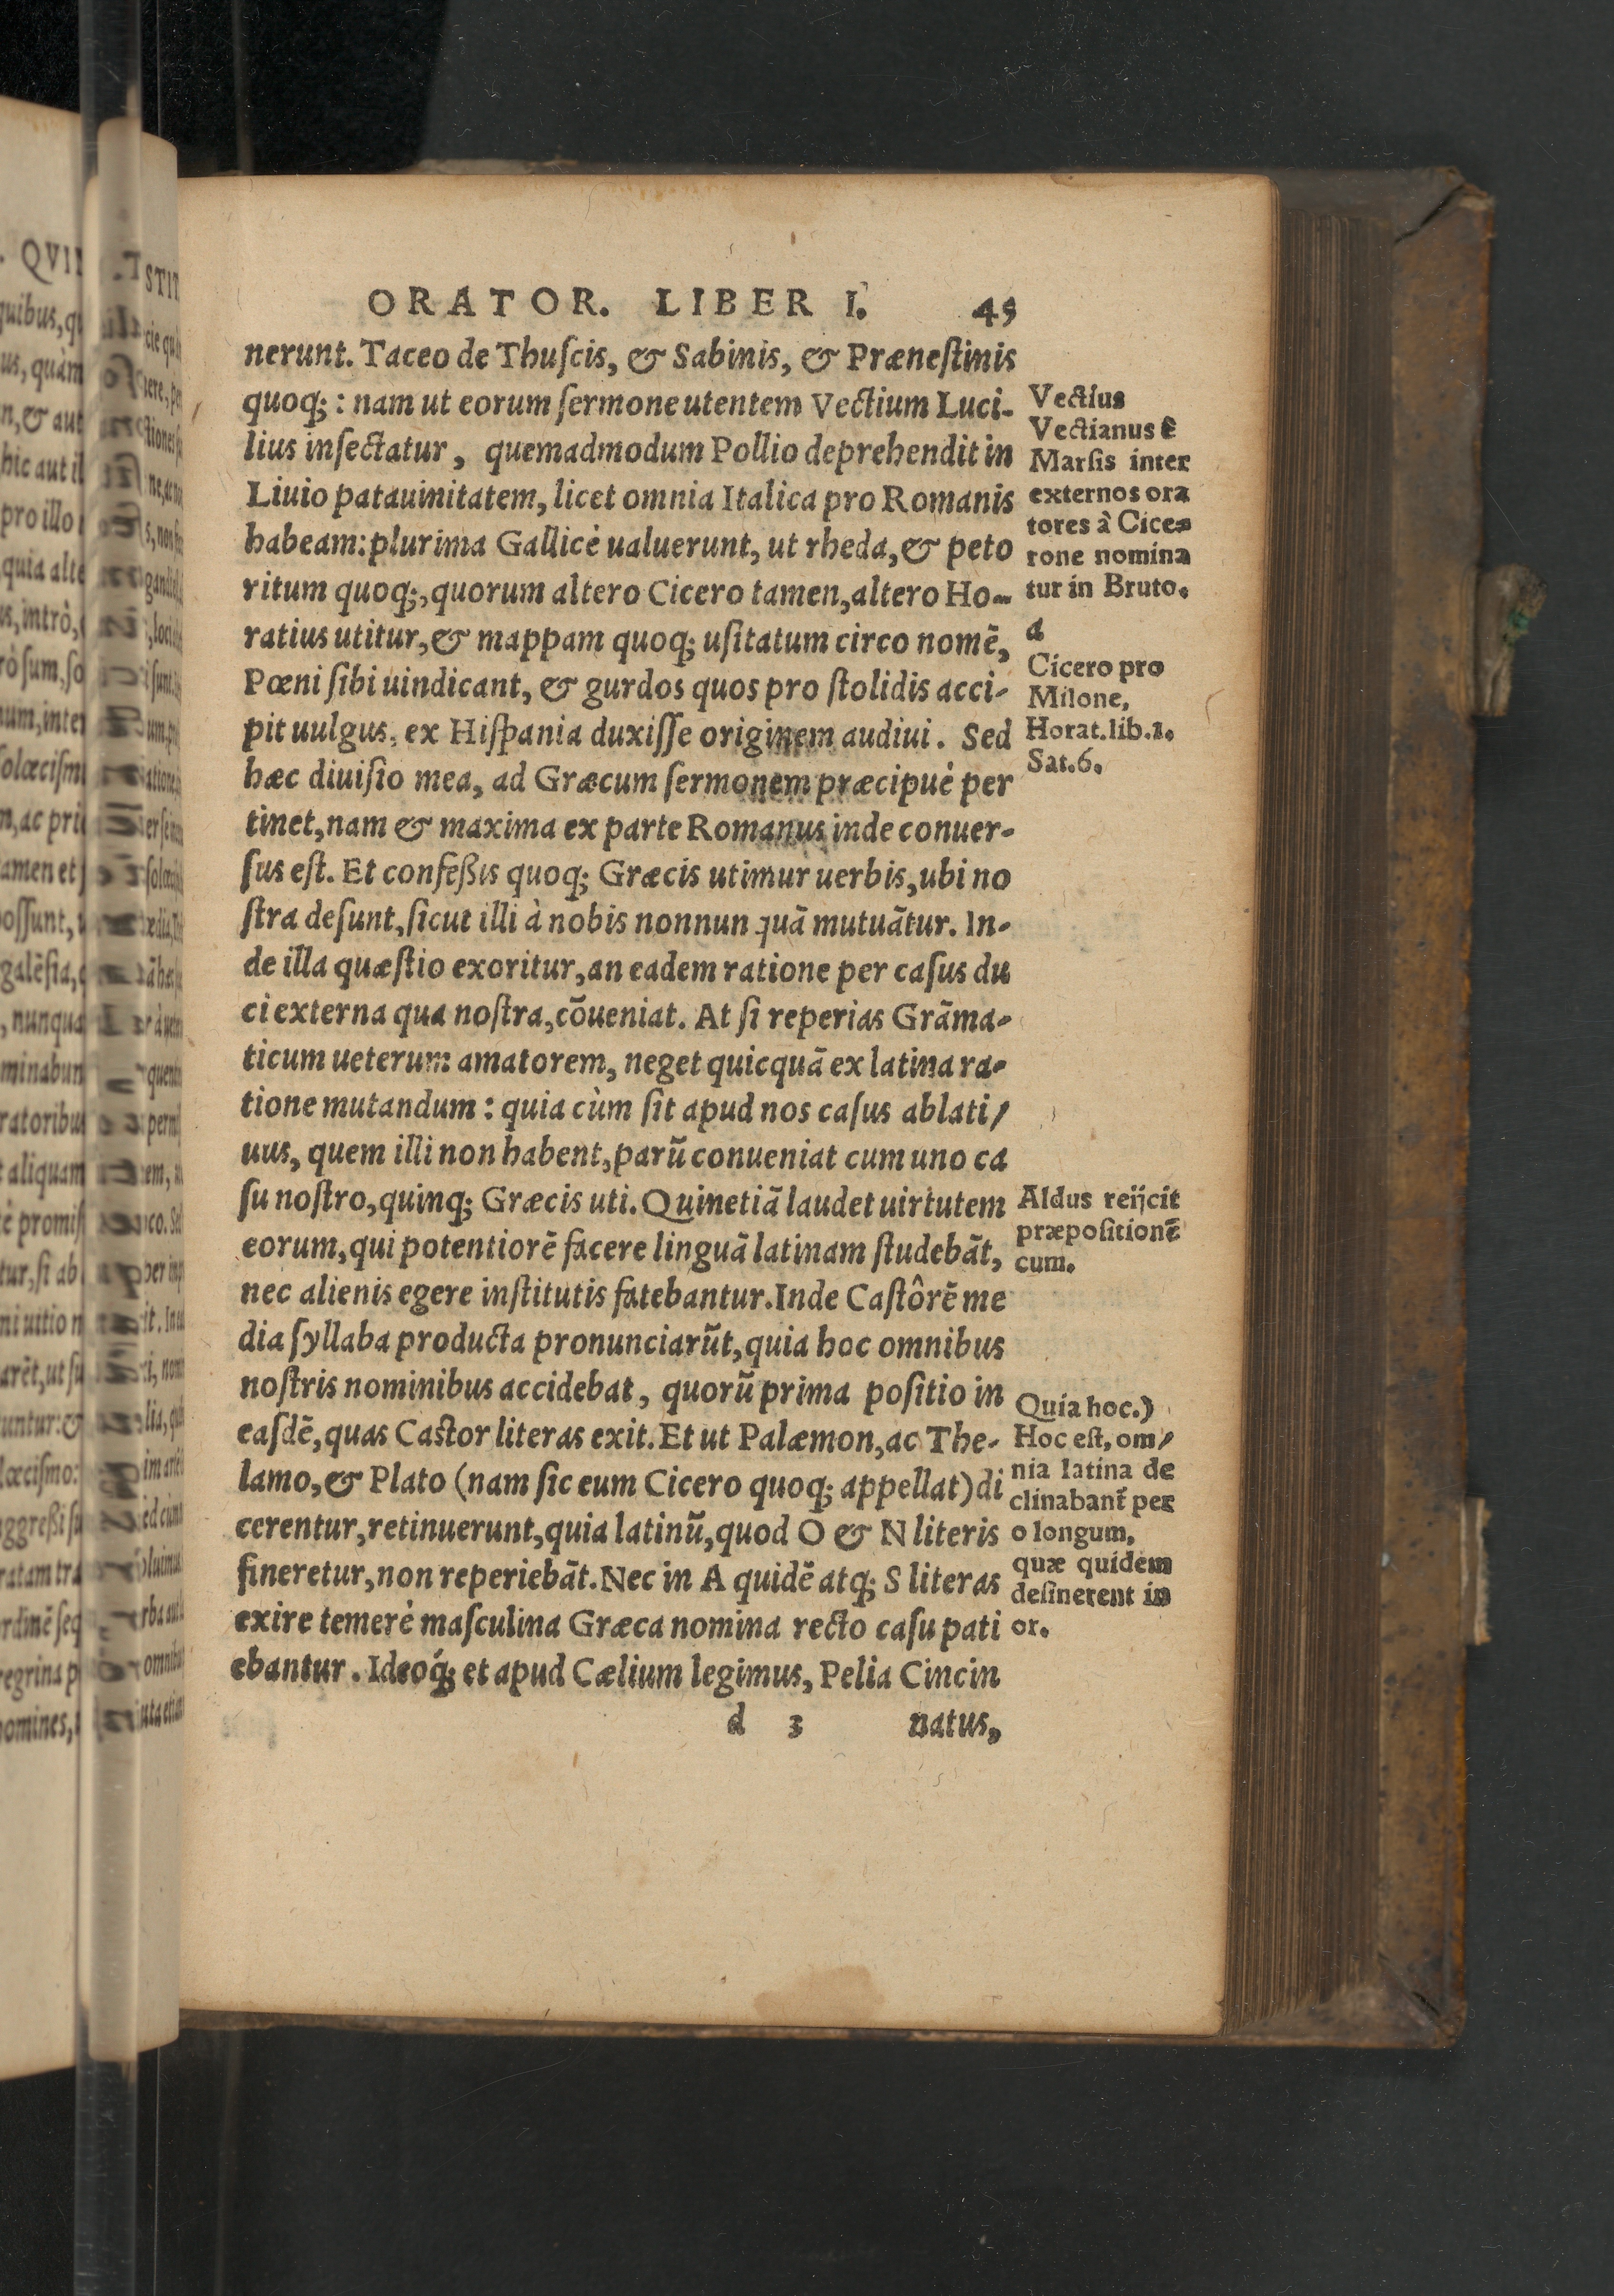 ORATOR. LIBER I. 45
nerunt. Taceo de Thuſcis, & Sabinis, & Præneſtinis
quoq;: nam ut eorum ſermone utentem Vectium Luci-
lius inſectatur, quemadmodum Pollio deprehendit in
Liuio patauinitatem, licet omnia Italica pro Romanis
habeam: plurima Gallicè ualuerunt, ut rheda, & peto
ritum quoq;, quorum altero Cicero tamen, altero Ho-
ratius utitur, & mappam quoq; uſitatum circo nomē,
Pœni ſibi uindicant, & gurdos quos pro ſtolidis acci-
pit uulgus, ex Hiſpania duxiſſe originem audiui. Sed
hæc diuiſio mea, ad Græcum ſermonem præcipuè per
tinet, nam & maxima ex parte Romanus inde conuer-
ſus eſt. Et confeßis quoq; Græcis utimur uerbis, ubi no
ſtra deſunt, ſicut illi à nobis nonnun quā mutuātur. In-
de illa quæſtio exoritur, an eadem ratione per caſus du
ci externa qua noſtra, cōueniat. At ſi reperias Grāma-
ticum ueterum amatorem, neget quicquā ex latina ra-
tione mutandum: quia cùm ſit apud nos caſus ablati/
uus, quem illi non habent, parū conueniat cum uno ca
ſu noſtro, quinq; Græcis uti. Quinetiā laudet uirtutem
eorum, qui potentiorē facere linguā latinam ſtudebāt,
nec alienis egere inſtitutis fatebantur. Inde Caſtôrē me
dia ſyllaba producta pronunciarūt, quia hoc omnibus
noſtris nominibus accidebat, quorū prima poſitio in
eaſdē, quas Caſtor literas exit. Et ut Palæmon, ac The-
lamo, & Plato (nam ſic eum Cicero quoq; appellat) di
cerentur, retinuerunt, quia latinū, quod O & N literis
fineretur, non reperiebāt. Nec in A quidē atq; S literas
exire temerè maſculina Græca nomina recto caſu pati
ebantur. Ideoq́; et apud Cælium legimus, Pelia Cincin
d 3 natus,
Vectius
Vectianus ē
Marſis inter
externos ora
tores à Cice-
rone nomina
tur in Bruto.
d
Cicero pro
Milone,
Horat. lib. 1.
Sat. 6.
Aldus reijcit
præpoſitionē
cum.
Quia hoc.)
Hoc eſt, om/
nia latina de
clinabant̄ per
o longum,
quæ quidem
deſinerent in
or.